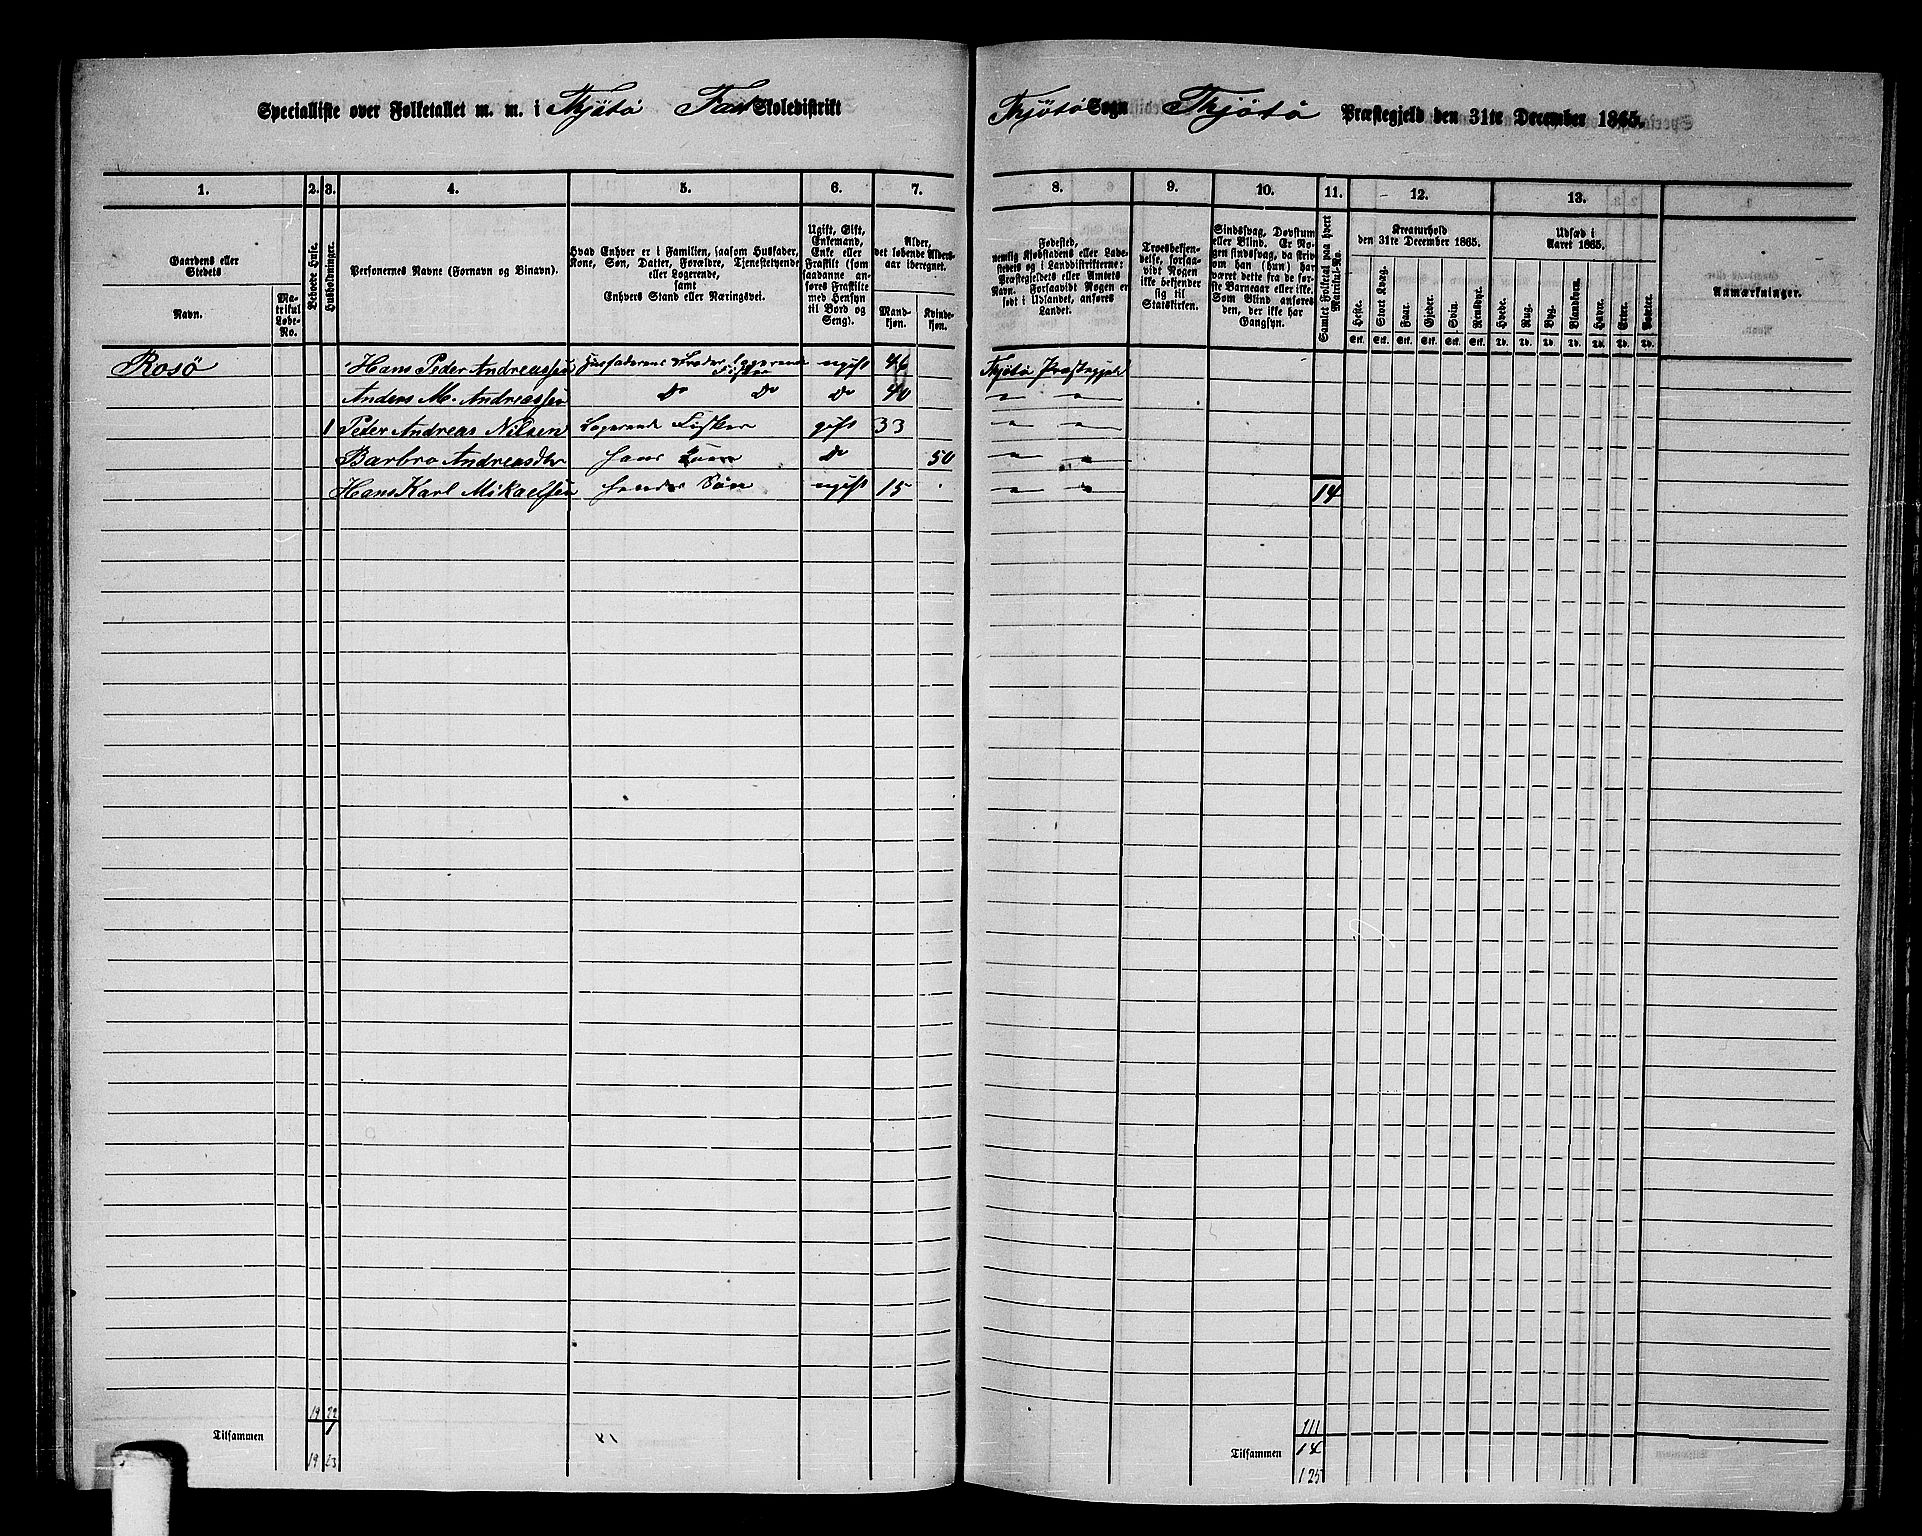 Specialliste over Folketallet m. m. i Thjötö Fast Skoledistrikt
Thjötö Sogn Thjötö Præstegjeld den 31te December 1865.
1. 2. 3. 4. 5. 6. 7. 8. 9. 10. 11. 12. 13.
Gaardens eller Stedets
Navn.
Matrikul Løbe-No.
Beboede Huse.
Husholdninger.
Personernes Navne (Fornavn og Binavn).
Hvad Enhver er i Familien, saasom Husfader, Kone, Søn, Datter, Forældre, Tjenestetyende eller Logerende,
samt
Enhvers Stand eller Næringsvei.
Ugift, Gift, Enkemand, Enke eller Fraskilt (som saadanne anføres Fraskilte med Hensyn til Bord og Seng).
Alder, det løbende Aldersaar iberegnet.
Mandkjøn.
Kvindekjøn.
Fødested, nemlig Kjøbstadens eller Ladestedets og i Landdistrikterne: Præstegjeldets eller Amtets Navn. Forsaavidt Nogen er født i Udlandet, anføres Landet.
Troesbekjendelse, forsaavidt Nogen ikke bekjender sig til Statskirken.
Sindssvag, Døvstum eller Blind. Er Nogen sindssvag, da skrives om han (hun) har været dette fra de første Barneaar eller ikke. Som Blind anføres den, der ikke har Gangsyn.
Samlet Folketal paa hvert Matrikul-No.
Kreaturhold den 31te December 1865.
Heste. Stort Kvæg. Faar. Gjeder. Svin. Rensdyr.
Stk. Stk. Stk. Stk. Stk. Stk.
Udsæd i Aaret 1865.
Hvede. Rug. Byg. Blandkorn. Havre. Erter. Poteter.
Td. Td. Td. Td. Td. Td. Td.
Anmærkninger.
Rosö Hans Peder Andreassen Husfaderens Broder Logerende Fisker ugift 46 Thjötö Præstegjeld
Anders M. Andreassen Do Do Do 40 " "
1 Peder Andreas Nilsen Logerende Fisker gift 33 " "
Barbro Andreasdtr hans Kone Do 50 " "
Hans Karl Mikaelsen hendes Søn ugift 15 " " 14
19 22 111
Tilsammen 1 Tilsammen 14
19 23 125